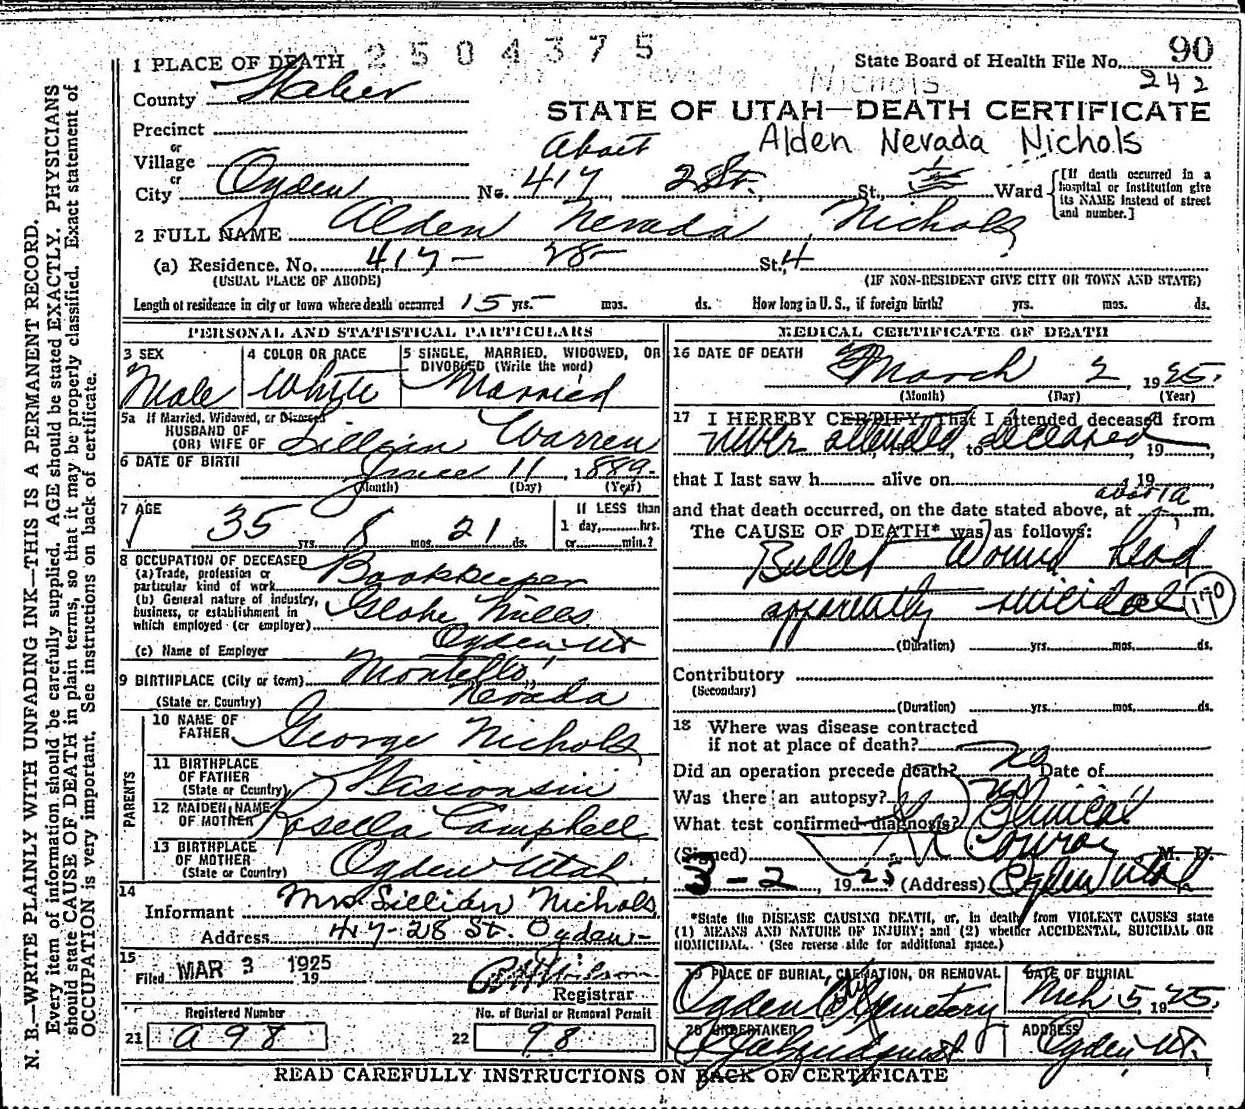 2504375
1 PLACE OF DEATH
State Board of Health File No. 90
242
Nevada Nichols
County Weber
STATE OF UTAH—DEATH CERTIFICATE
Precinct
or
Village
About
Alden Nevada Nichols
or
City Ogden No. 417 28 St. St., Ward
[If death occurred in a hospital or institution give its NAME instead of street and number.]
2 FULL NAME Alden Nevada Nichols
(a) Residence. No. 417- 28- St. 4
(USUAL PLACE OF ABODE) (IF NON-RESIDENT GIVE CITY OR TOWN AND STATE)
Length of residence in city or town where death occurred 15 yrs. mos. ds. How long in U. S., if foreign birth? yrs. mos. ds.
PERSONAL AND STATISTICAL PARTICULARS
3 SEX
Male
4 COLOR OR RACE
White
5 SINGLE, MARRIED, WIDOWED, OR
DIVORCED (Write the word)
Married
5a If Married, Widowed, or Divorced
HUSBAND OF
(OR) WIFE OF Lillian Warren
6 DATE OF BIRTH June 11, 1889.
(Month) (Day) (Year)
7 AGE
35 yrs. 8 mos. 21 ds.
If LESS than
1 day, hrs.
or min.?
8 OCCUPATION OF DECEASED
(a) Trade, profession or
particular kind of work Bookkeeper
(b) General nature of industry,
business, or establishment in
which employed (or employer) Globe Mills
Ogden Ut
(c) Name of Employer
9 BIRTHPLACE (City or town) Montello,
(State or Country) Nevada
PARENTS
10 NAME OF
FATHER George Nichols
11 BIRTHPLACE
OF FATHER
(State or Country) Wisconsin
12 MAIDEN NAME
OF MOTHER Rosella Campbell
13 BIRTHPLACE
OF MOTHER
(State or Country) Ogden Utah.
14
Informant Mrs Lillian Nichols
Address 417-28 St. Ogden-
15
Filed MAR 3 1925
19
Wilson
Registrar
Registered Number
21 a 98
No. of Burial or Removal Permit
22 98
MEDICAL CERTIFICATE OF DEATH
16 DATE OF DEATH
March 2, 1925.
(Month) (Day) (Year)
17 I HEREBY CERTIFY, That I attended deceased from
never attended deceased, to , 19
that I last saw h alive on , 19
about 1 a
and that death occurred, on the date stated above, at m.
The CAUSE OF DEATH* was as follows:
Bullet wound head
apparently suicidal 170
(Duration) yrs. mos. ds.
Contributory
(Secondary)
(Duration) yrs. mos. ds.
18 Where was disease contracted
if not at place of death?
Did an operation precede death? no Date of
Was there an autopsy? no
What test confirmed diagnosis? Clinical
(Signed) Conroy M. D.
3-2, 1925 (Address) Ogden Utah
*State the DISEASE CAUSING DEATH, or, in death from VIOLENT CAUSES state
(1) MEANS AND NATURE OF INJURY; and (2) whether ACCIDENTAL, SUICIDAL OR
HOMICIDAL. (See reverse side for additional space.)
19 PLACE OF BURIAL, CREMATION, OR REMOVAL
Ogden City Cemetery
DATE OF BURIAL
Mch 5, 1925.
20 UNDERTAKER
Lindquist
ADDRESS
Ogden Ut.
READ CAREFULLY INSTRUCTIONS ON BACK OF CERTIFICATE
N. B.—WRITE PLAINLY WITH UNFADING INK—THIS IS A PERMANENT RECORD.
Every item of information should be carefully supplied. AGE should be stated EXACTLY. PHYSICIANS
should state CAUSE OF DEATH in plain terms, so that it may be properly classified. Exact statement of
OCCUPATION is very important. See instructions on back of certificate.